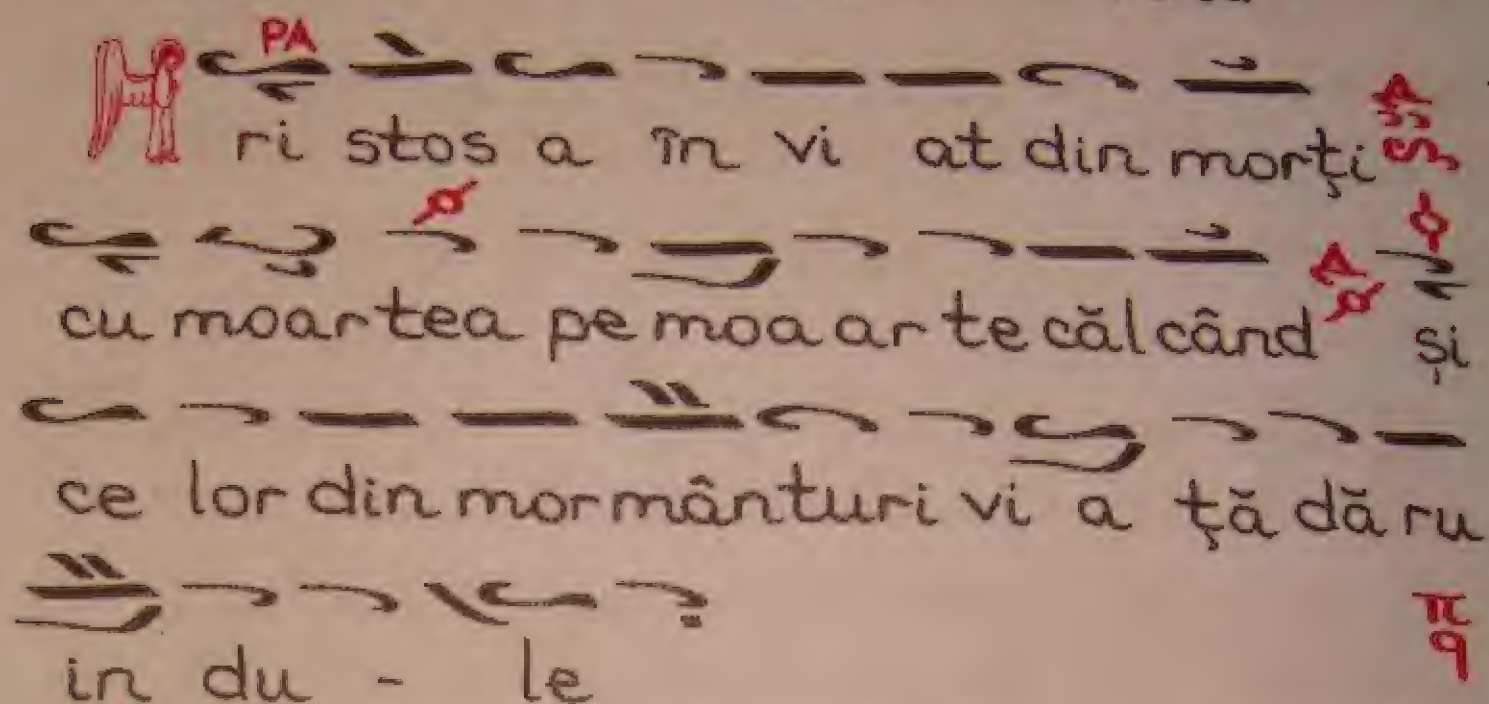 PA
Hri stos a în vi at din morţi
cu moar tea pe moa ar te căl când şi
ce lor din mor mân turi vi a ţă dă ru
in du - le